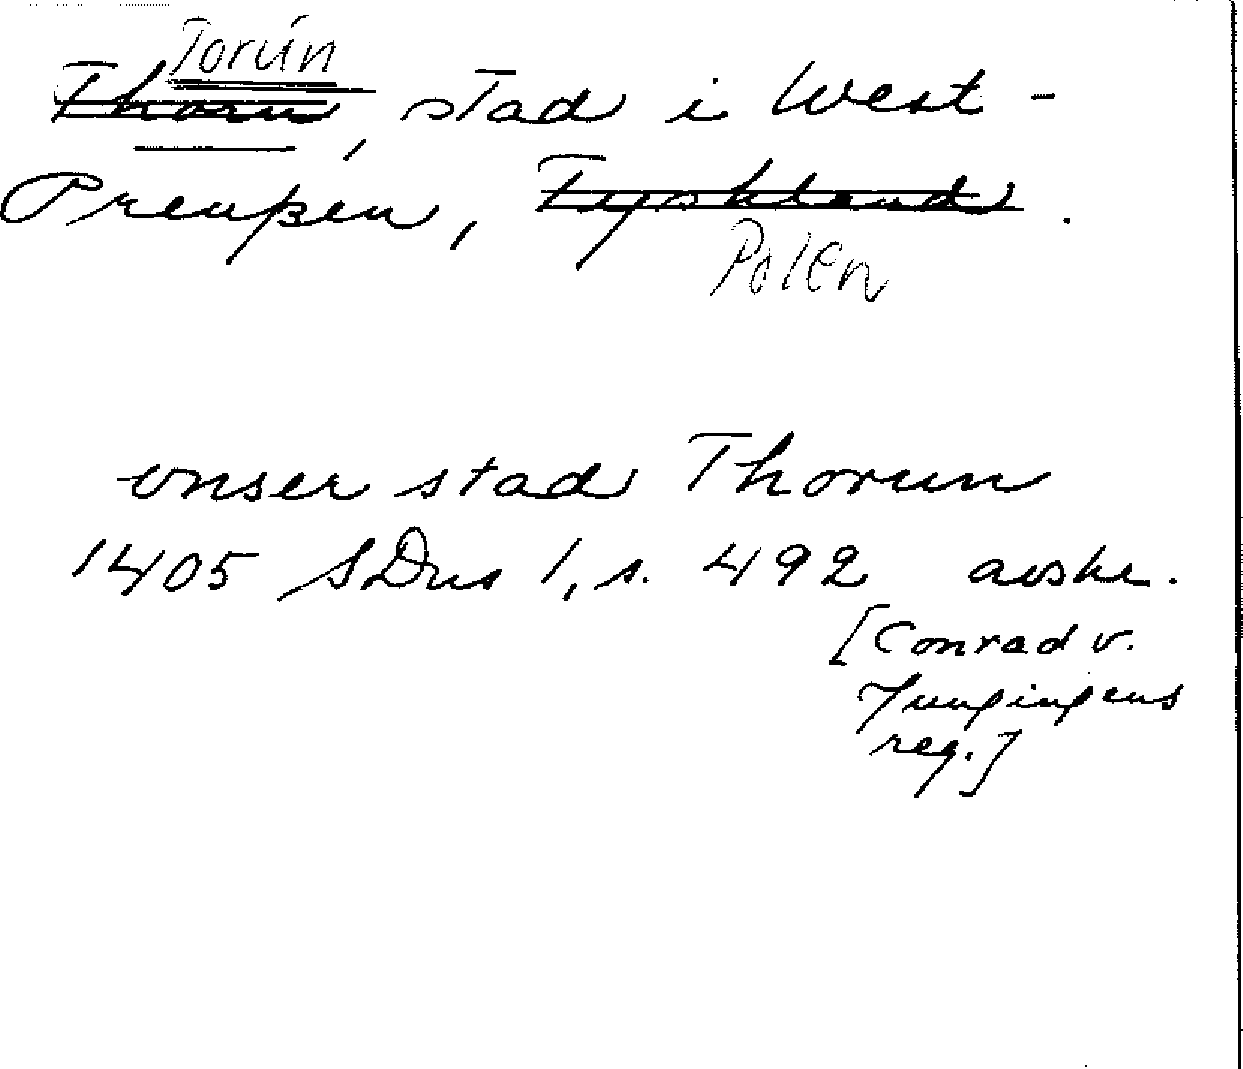 Torún
Thorn, stad i West-
Preußen, Tyskland.
Polen
vnser stad Thorun
1405 SDns 1, s. 492 avskr.
[Conrad v.
Jungingens
reg.]